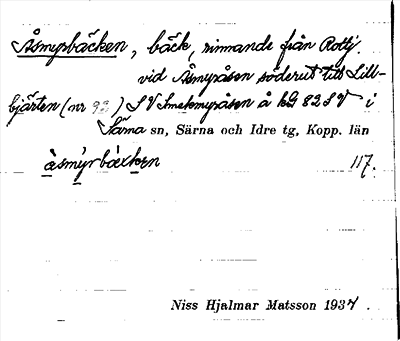 Åsmyrbäcken, bäck, rinnande från Rottj.
vid Åsmyråsen söderut till Lill-
bjärten (nr 93) S V Smekmyråsen å kG 82 S V i
Särna sn, Särna och Idre tg, Kopp. län
àsmýrbækεn 117.
Niss Hjalmar Matsson 1937.